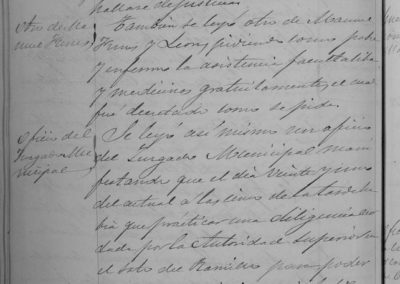 hallase de justicia
Otro de Ma
nuel Frins
También se leyó otro de Manuel
Frins y Leon, pidiendo como pobre
y enfermo la asistencia facultativa
y medicinas gratuitamente, el cual
fué decretado como se pide.
Oficio del
Juzgado Mu
nicipal
Se leyó asi mismo un oficio
del Juzgado Municipal mani
festando que el dia veinte y uno
del actual á las cinco de la tarde ha
bia que practicar una diligencia acor
dada por la Autoridad superior en
el Soto del Ramillo para poder